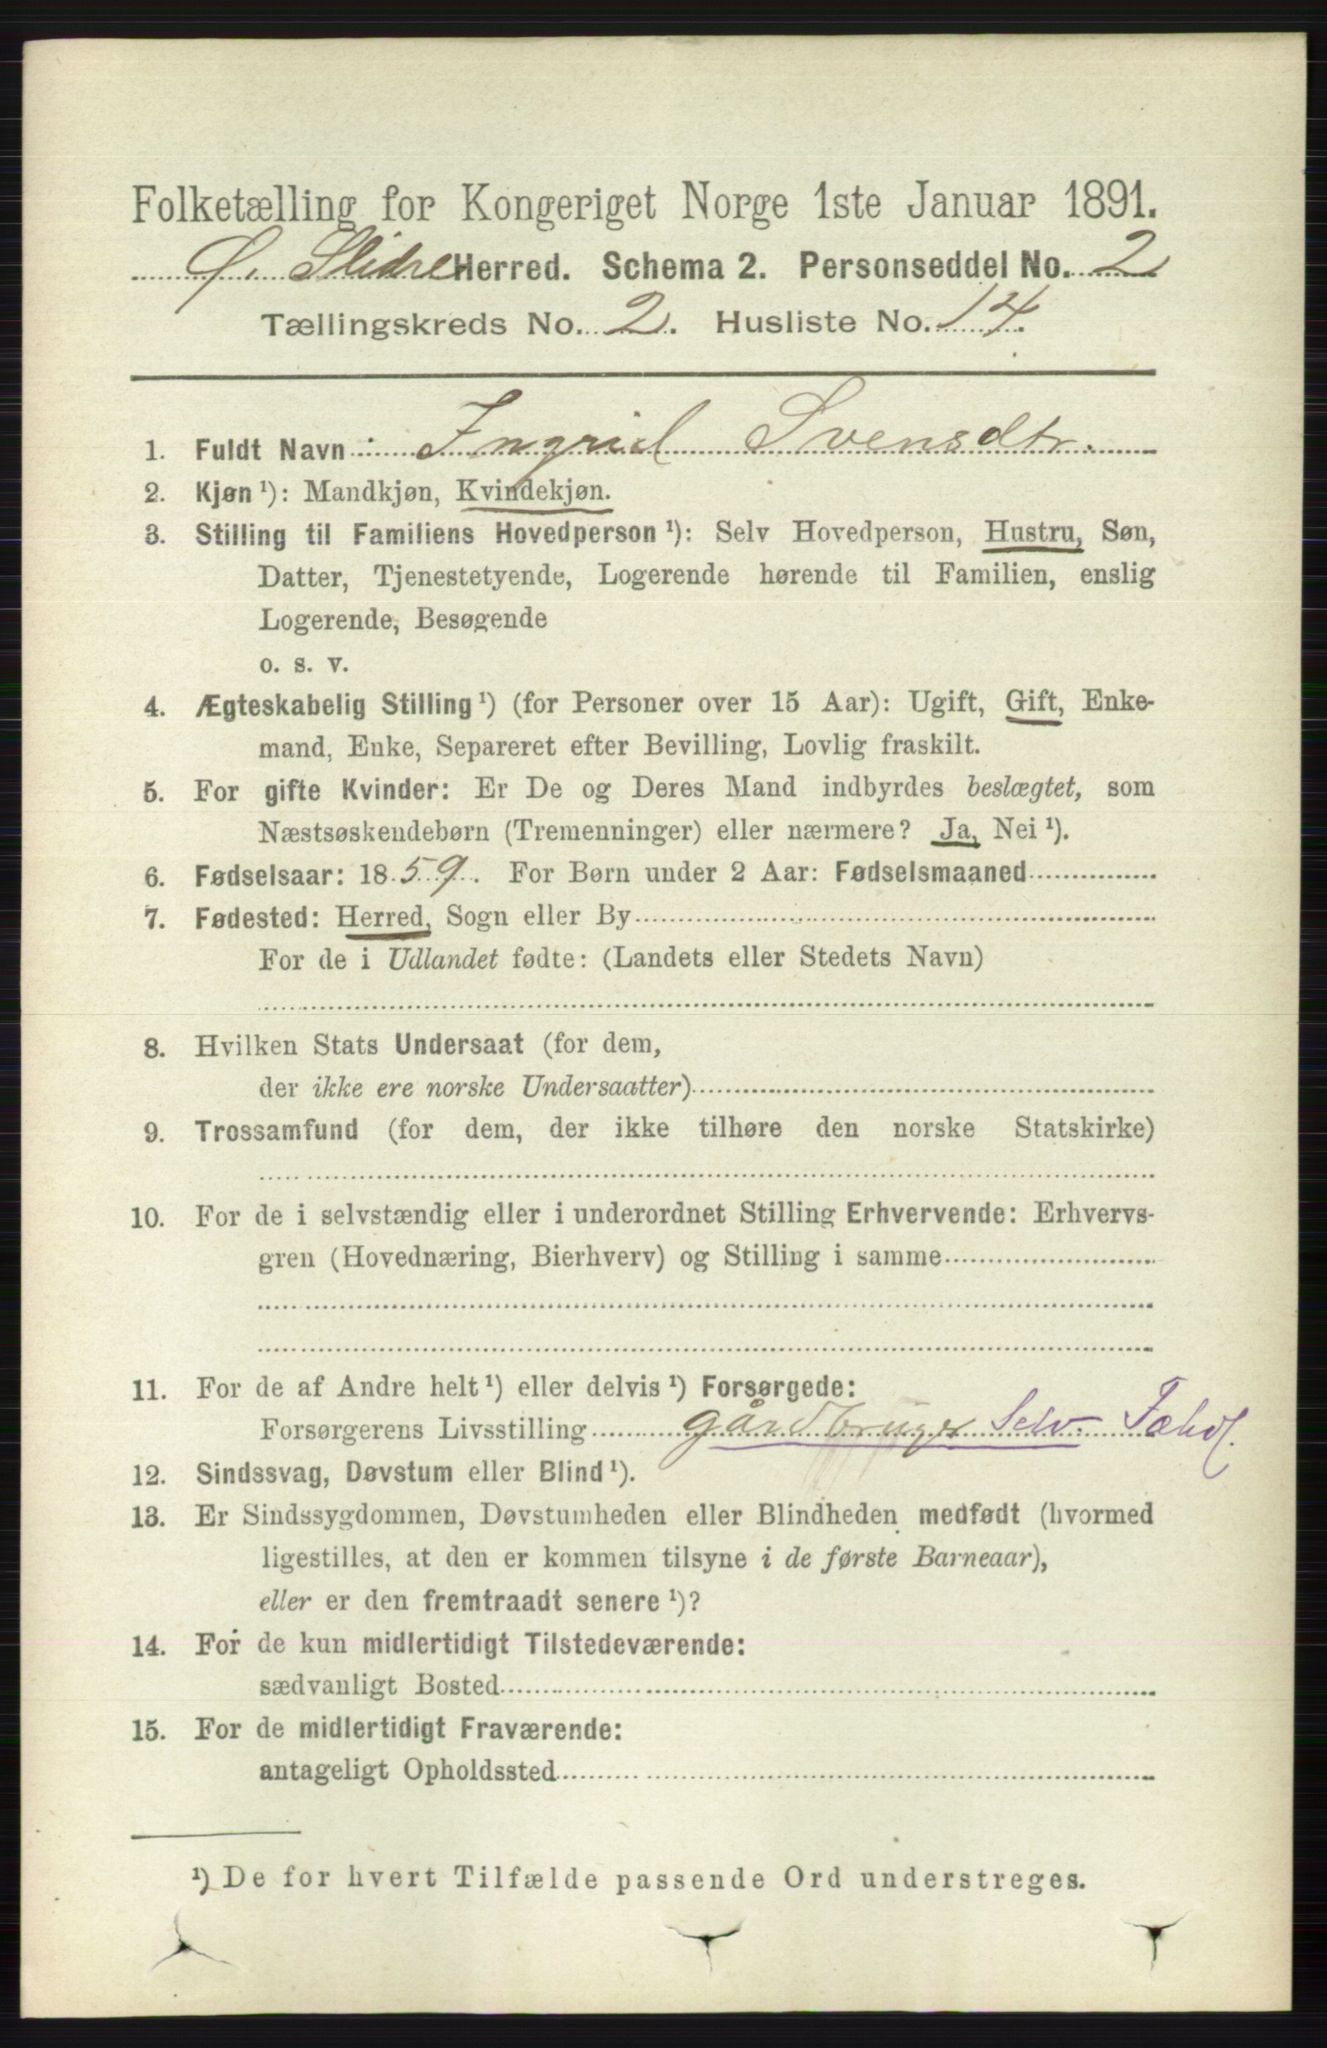 Folketælling for Kongeriget Norge 1ste Januar 1891.
Ø. Slidre Herred. Schema 2. Personseddel No. 2
Tællingskreds No. 2. Husliste No. 14.
1. Fuldt Navn: Ingrid Svensdtr.
2. Kjøn ¹): Mandkjøn, Kvindekjøn.
3. Stilling til Familiens Hovedperson ¹): Selv Hovedperson, Hustru, Søn,
Datter, Tjenestetyende, Logerende hørende til Familien, enslig
Logerende, Besøgende
o. s. v.
4. Ægteskabelig Stilling ¹) (for Personer over 15 Aar): Ugift, Gift, Enke-
mand, Enke, Separeret efter Bevilling, Lovlig fraskilt.
5. For gifte Kvinder: Er De og Deres Mand indbyrdes beslægtet, som
Næstsøskendebørn (Tremenninger) eller nærmere? Ja, Nei ¹).
6. Fødselsaar: 1859. For Børn under 2 Aar: Fødselsmaaned
7. Fødested: Herred, Sogn eller By
For de i Udlandet fødte: (Landets eller Stedets Navn)
8. Hvilken Stats Undersaat (for dem,
der ikke ere norske Undersaatter)
9. Trossamfund (for dem, der ikke tilhøre den norske Statskirke)
10. For de i selvstændig eller i underordnet Stilling Erhvervende: Erhvervs-
gren (Hovednæring, Bierhverv) og Stilling i samme
11. For de af Andre helt ¹) eller delvis ¹) Forsørgede:
Forsørgerens Livsstilling gårdbruger Selv.
12. Sindssvag, Døvstum eller Blind ¹).
13. Er Sindssygdommen, Døvstumheden eller Blindheden medfødt (hvormed
ligestilles, at den er kommen tilsyne i de første Barneaar),
eller er den fremtraadt senere ¹)?
14. For de kun midlertidigt Tilstedeværende:
sædvanligt Bosted
15. For de midlertidigt Fraværende:
antageligt Opholdssted
¹) De for hvert Tilfælde passende Ord understreges.